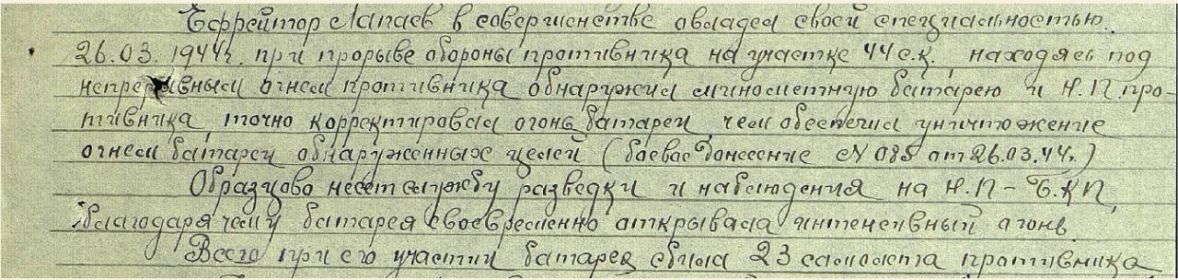 Ефрейтор Лапаев в совершенстве овладел своей специальностью.
26.03.1944г. при прорыве обороны противника на участке 44 с.к. находясь под
непрерывным огнем противника обнаружил минометную батарею и Н.П. про-
тивника, точно корректировал огонь батареи, чем обеспечил уничтожение
огнем батареи обнаруженных целей (боевое донесение № 085 от 26.03.44г.)
Образцово несет службу разведки и наблюдения на Н.П - Б.КП,
благодаря чему батарея своевременно открывала интенсивный огонь.
Всего при его участии батарея сбила 23 самолета противника